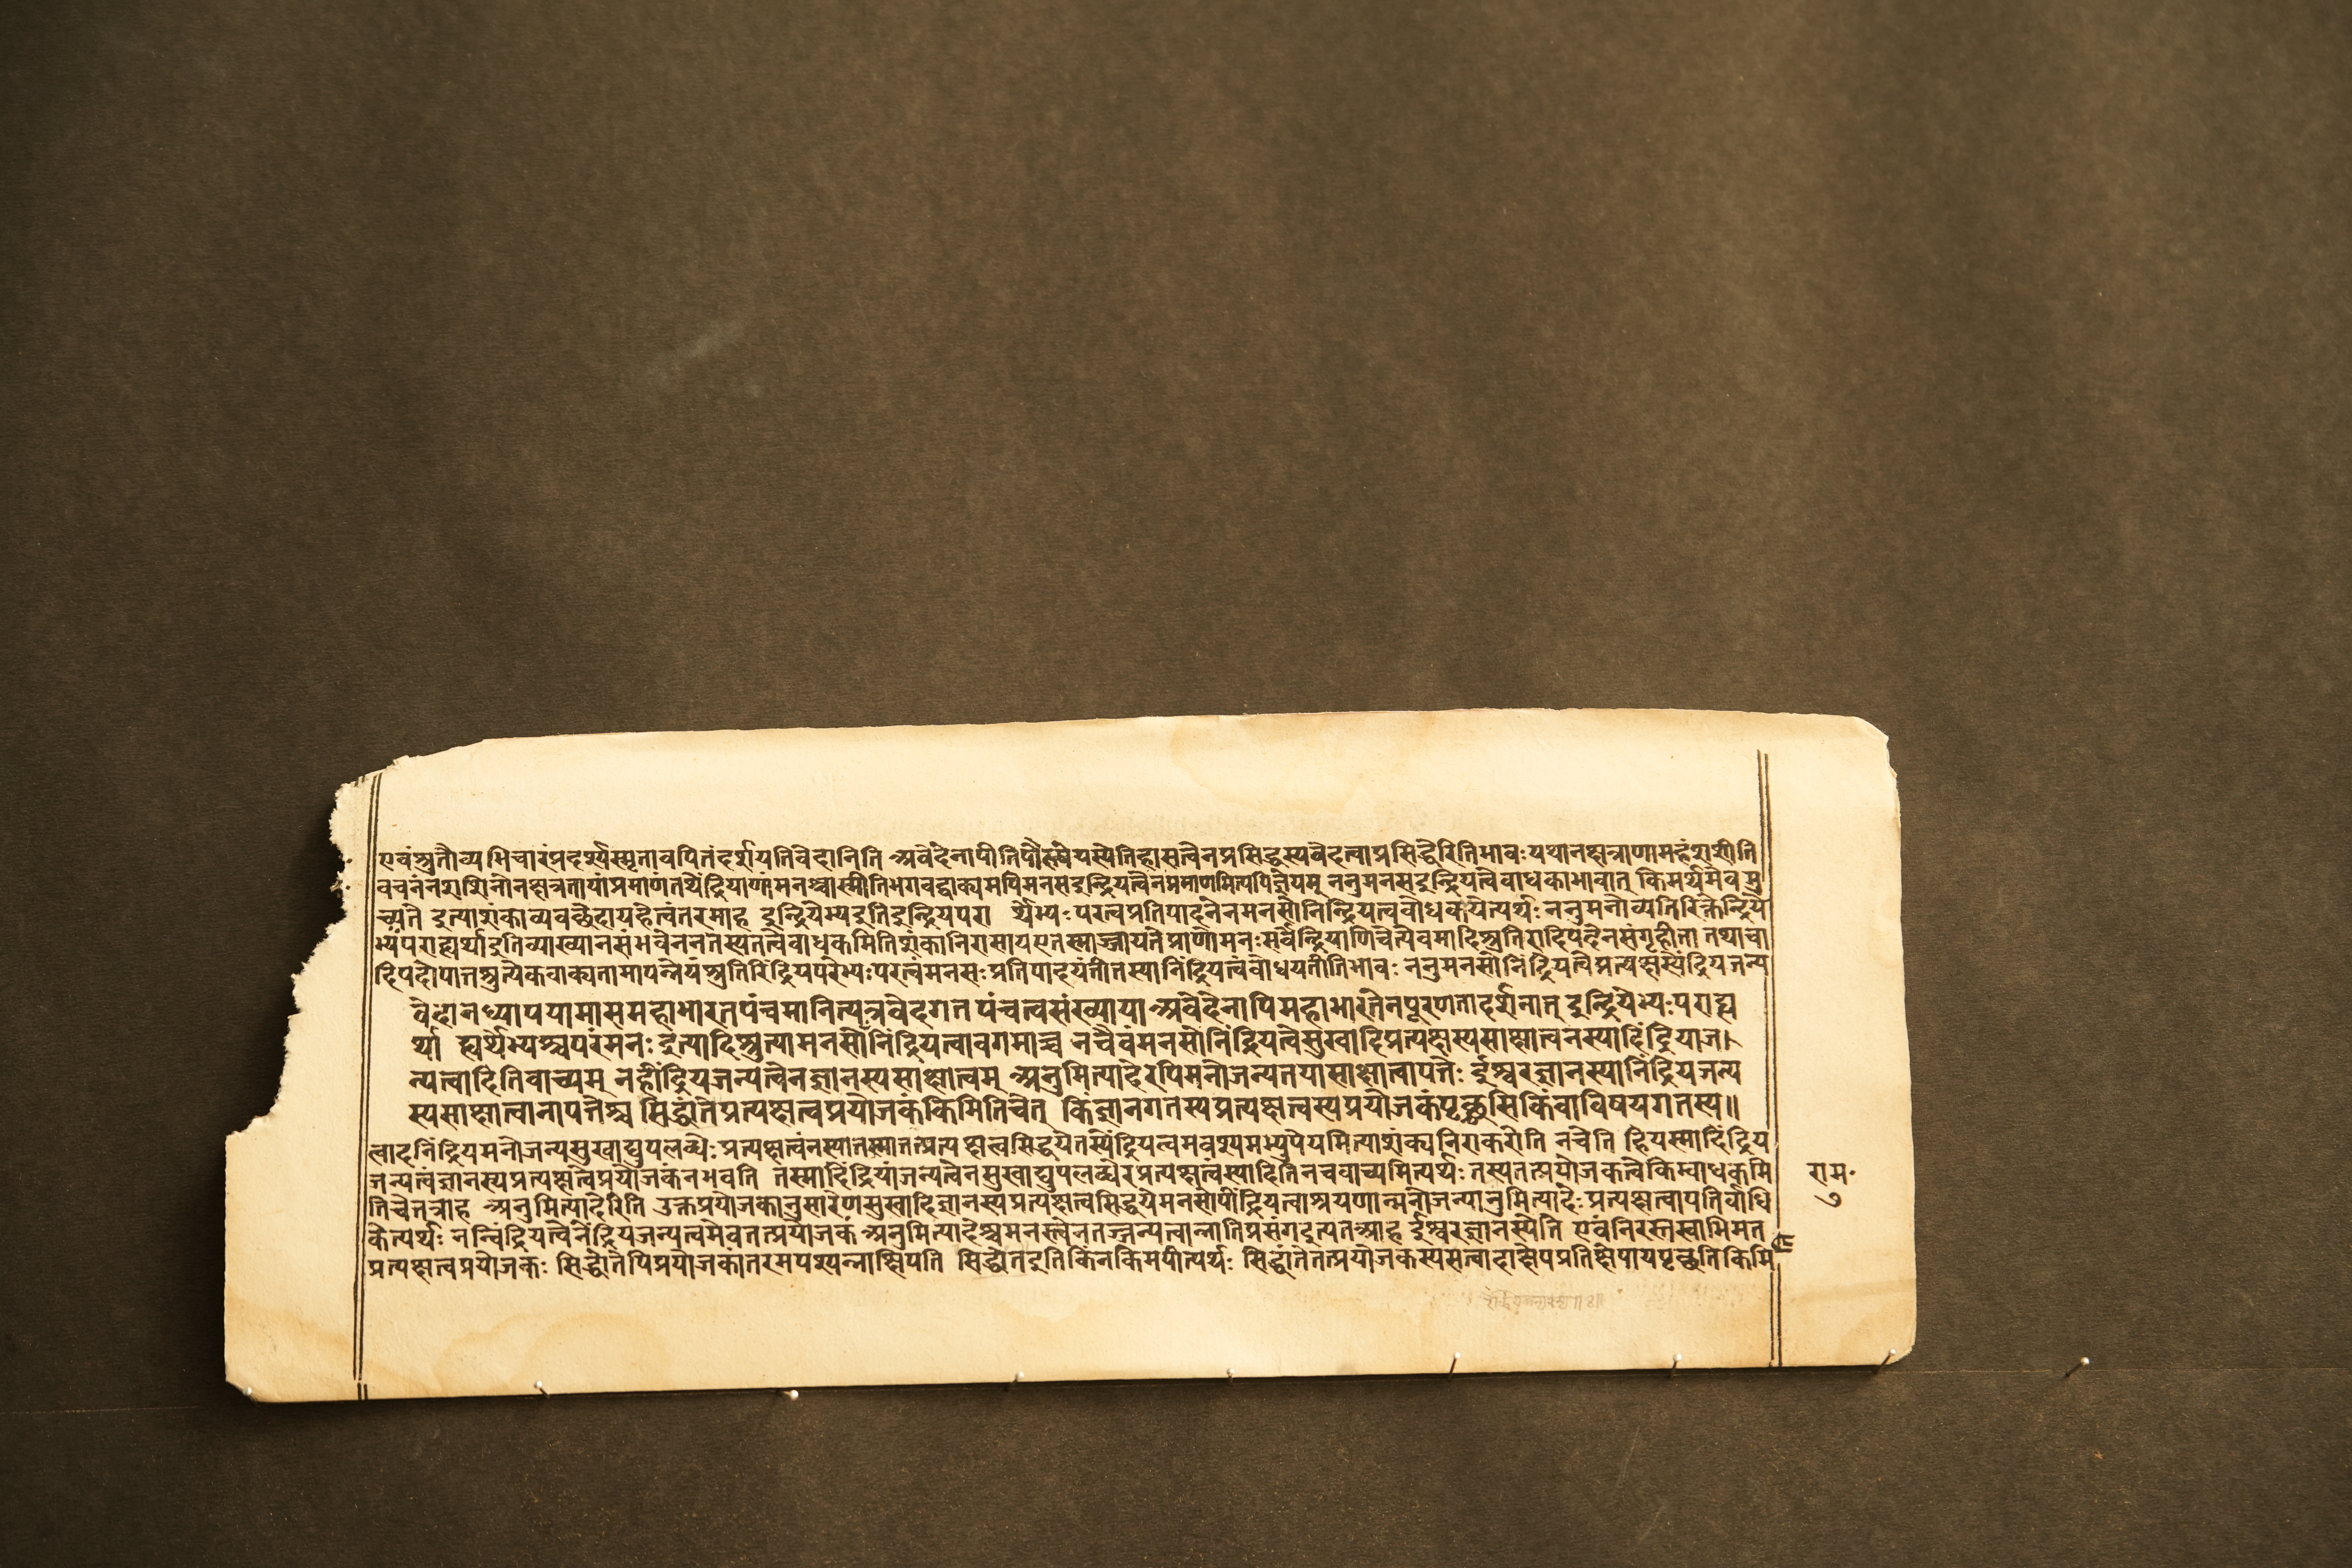 एवंश्रुतौव्यभिचारंप्रदर्श्यस्मृतावपितंदर्शयतिवेदानिति अवेदेनापीतिपौरुषेयस्येतिहासत्वेनप्रसिद्धस्यवेदत्वाप्रसिद्धेरितिभावः यथानक्षत्राणामहंशशीति
वचनंनशशिनोनक्षत्रतायांप्रमाणंतथेंद्रियाणांमनश्चास्मीतिभगवद्वाक्यमपिमनसइन्द्रियत्वेनप्रमाणमित्यपिज्ञेयम् ननुमनसइन्द्रियत्वेबाधकाभावात् किमर्थमेवमु
च्यते इत्याशंकाव्यवच्छेदायहेत्वंतरमाह इन्द्रियेभ्यइतिइन्द्रियपरा र्थेभ्यः परत्वप्रतिपादनेनमनसोनिन्द्रियत्वबोधकयेत्यर्थः ननुमनोव्यतिरिक्तेन्द्रिये
भ्यंपराह्यर्थाइतिव्याख्यानसंभवेननतस्यतत्वेबाधकमितिशंकानिरासायएतस्माज्जायतेप्राणोमनःसर्वेन्द्रियाणिचेत्येवमादिश्रुतिरादिपदेनसंगृहीता तथाचा
दिपदोपात्तश्रुत्येकवाक्यतामापन्नेयंश्रुतिरिंद्रियपरेभ्यःपरत्वंमनसःप्रतिपादयंतीतस्यानिंद्रियत्वंबोधयतीतिभावः ननुमनसोनिंद्रियत्वेप्रत्यक्षस्येंद्रियजन्य
वेदानध्यापयामासमहाभारतपंचमानित्यत्रवेदगत पंचत्वसंख्याया अवेदेनापिमहाभारतेनपूरणतादर्शनात् इन्द्रियेभ्यःपराह्य
र्था ह्यर्थेभ्यश्चपरंमनः इत्यादिश्रुत्यामनसोनिंद्रियत्वावगमाच्च नचैवंमनसोनिंद्रियत्वेसुखादिप्रत्यक्षस्यसाक्षात्वनस्यादिंद्रियाज।
न्यत्वादितिवाच्यम् नहींद्रियजन्यत्वेनज्ञानस्यसाक्षात्वम् अनुमित्यादेरपिमनोजन्यतयासाक्षात्वापत्तेः ईश्वरज्ञानस्यानिंद्रियजन्य
स्यसाक्षात्वानापत्तेश्च सिद्धांतेप्रत्यक्षत्वप्रयोजकंकिमितिचेत् किंज्ञानगतस्यप्रत्यक्षत्वस्यप्रयोजकंपृच्छसिकिंवाविषयगतस्य॥
त्वादनिंद्रियमनोजन्यसुखाद्युपलब्धेः प्रत्यक्षत्वंनस्यातस्मातत्प्रत्य क्षत्वसिद्धयेतस्येंद्रियत्वमवश्यमभ्युपेयमित्याशंक्यनिराकरोति नचेति हियस्मादिंद्रिय
जन्यत्वंज्ञानस्यप्रत्यक्षत्वेप्रयोजकंनभवति तस्मादिंद्रियाजन्यत्वेनसुखाद्युपलब्धेरप्रत्यक्षत्वस्यादितिनचवाच्यमित्यर्थः तस्यतत्प्रयोजकत्वेकिम्बाधकमि
तिचेत्तत्राह अनुमित्यादेरिति उक्तप्रयोजकानुसारेणसुखादिज्ञानस्यप्रत्यक्षत्वसिद्धयेमनसोपींद्रियत्वाश्रयणान्मनोजन्यानुमित्यादेःप्रत्यक्षत्वापतिर्बाधि
केत्यर्थः नन्विंद्रियत्वेनेंद्रियजन्यत्वमेवतत्प्रयोजकं अनुमित्यादेश्चमनस्त्वेनतज्जन्यत्वान्नातिप्रसंगइत्यतआह ईश्वरज्ञानस्येति एवंनिरस्तस्वाभिमत
प्रत्यक्षत्वप्रयोजकः सिद्धांतेपिप्रयोजकांतरमपश्यन्नाक्षिपति सिद्धांतइतिकिंनकिमपीत्यर्थः सिद्धांतेतत्प्रयोजकस्यसत्वादाक्षेपप्रतिक्षेपायपृच्छतिकिमि
राम॰
७